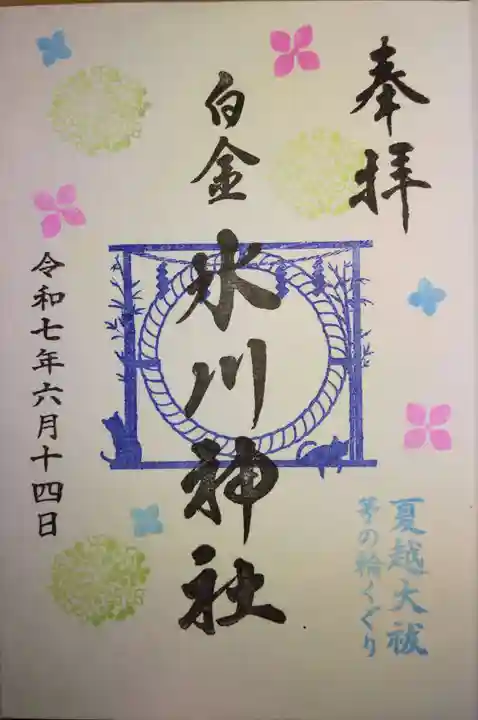 奉拝
白金
氷川神社
令和七年六月十四日
夏越大祓
茅の輪くぐり